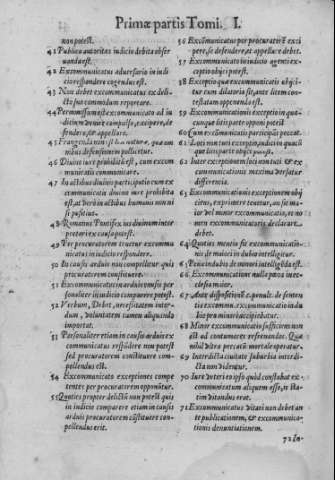 Primæ partis Tomi. I.
non potest.
41 Publica autoritas iudicio debita obser
uanda est.
42 Excommunicatus aduersario in iudi
cio respondere cogendus est.
43 Non debet excommunicatus ex deli-
cto suo commodum reportare.
44 Permissum est excommunicato ad iu
dicium venire compulso, excipere, de
fendere, & appellare.
45 Frangenda non est lex naturæ, quæ om
nibus defensionem pollicetur.
46 Diuini iure prohibitum est, cum excom
municatis communicare.
47 In actibus diuinis participatio cum ex
communicatis diuino iure prohibita
est, at verò in actibus humanis non ni
si positiuo.
48 Romanus Pontifex ius diuinum inter
pretari ex causa potest.
49 Per procuratorem tenetur excommu
nicatus in iudicio respondere.
50 In causis arduis non compellitur quis
procuratorem constituere.
51 Excommunicatus in arduis causis per
sonaliter in iudicio comparere potest.
52 Verbum, Debet, necessitatem interdum,
voluntatem tamen aliquando
importat.
53 Personaliter etiam in causis arduis ex
communicatus respondere non potest
sed procuratorem constituere com-
pellendus est.
54 Excommunicato exceptiones compe
tentes per procuratorem opponũtur.
55 Quoties propter delictũ non potest quis
in iudicio comparere etiam in causis
arduis procuratorem cõstituere com-
pellendus erit.
56 Excõmunicatus per procuratorẽ exci
pere, se defendere, et appellare debet.
57 Excommunicato in iudicio agenti ex-
ceptio obijci potest.
58 Exceptio quæ excommunicatis obijci-
tur cum dilatoria sit, ante litem con-
testatam opponenda est.
59 Excommunicationis exceptio in quo-
cunque litis parte opponi potest
60 Cum excõmunicatis participãs peccat.
61 Loci non tui exceptio, à iudice quando
que litis parte obijci potest.
62 Inter exceptionem loci non tuti & ex
communicationis maxima versatur
differentia.
63 Excommunicationis exceptionem obij
ciens, exprimere tenetur, an sit maior
vel minor excommunicatio, et no
men excommunicatoris declarare
debet.
64 Quoties mentio sit excommunicatio-
nis de maiori in dubio intelligitur.
65 Penitendus de minori intelligẽda est.
66 Excommunicatione nulla pœna in ec-
clesia maior.
67 Ante dispositionẽ c. penult. de senten
tia excommu. excommunicatio in du
bio pro minori accipiebatur.
68 Minor excommunicatio sufficiens non
est ad contumaces refrenandos. Qua
vitatur vitro peccans mortale operatur.
69 Interdicta ciuitate suburbia interdi-
cta non videntur.
70 Iure veteri eo ipso quòd constabat ex-
communicatum aliquem esse, is sta
tim vitandus erat.
71 Excommunicatus vitari non debet an
te publicationem, & excommunica-
tionis denuntiationem.
72 In-